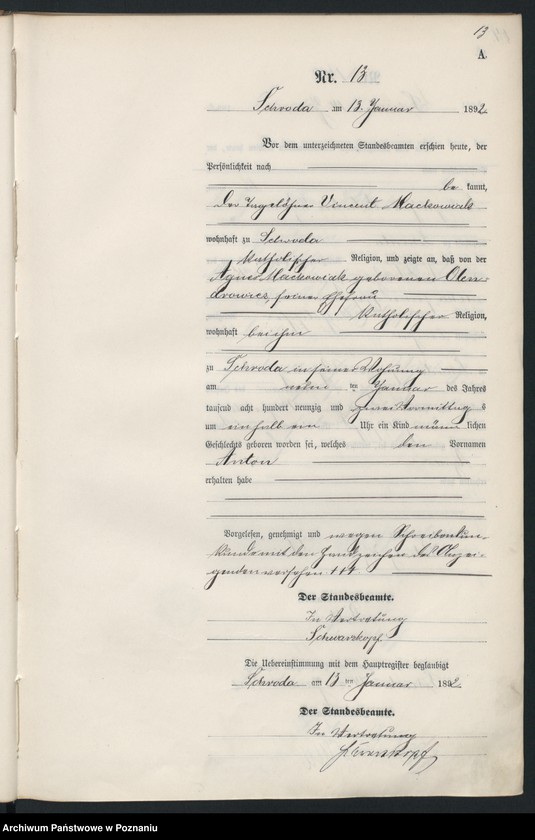 13
A.
Nr. 13
Schroda am 13. Januar 1892
Vor dem unterzeichneten Standesbeamten erschien heute, der
Persönlichkeit nach
be kannt,
der Tagelöhner Vincent Mackowiak
wohnhaft zu Schroda
katholischer Religion, und zeigte an, daß von der
Agnes Mackowiak geborenen Olen-
drowicz seiner Ehefrau
katholischer Religion,
wohnhaft bei ihm
zu Schroda in seiner Wohnung
am ten Januar des Jahres
tausend acht hundert neunzig und zwei Vormittag s
um einhalb ein Uhr ein Kind männ lichen
Geschlechts geboren worden sei, welches den Vornamen
Anton
erhalten habe
Vorgelesen, genehmigt und wegen Schreibensun-
kunde mit den Handzeichen des Anzei-
genden versehen +++.
Der Standesbeamte.
In Vertretung
Schwarzkopf
Die Uebereinstimmung mit dem Hauptregister beglaubigt
Schroda am 13 ten Januar 1892
Der Standesbeamte.
In Vertretung
Schwarzkopf
Archiwum Państwowe w Poznaniu